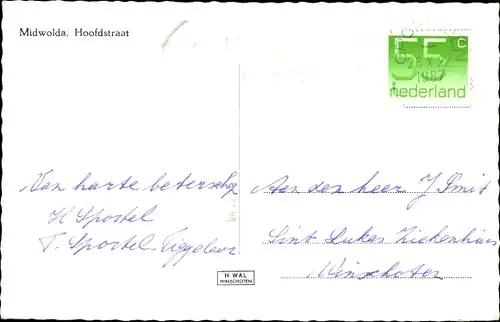 Midwolda, Hoofdstraat
55 c
nederland
28 X
1987
Van harte beterschap
H Sportel
T. Sportel-
Aan den heer J Smit
Sint Lukas Ziekenhuis
Winschoten
H. WAL
WINSCHOTEN